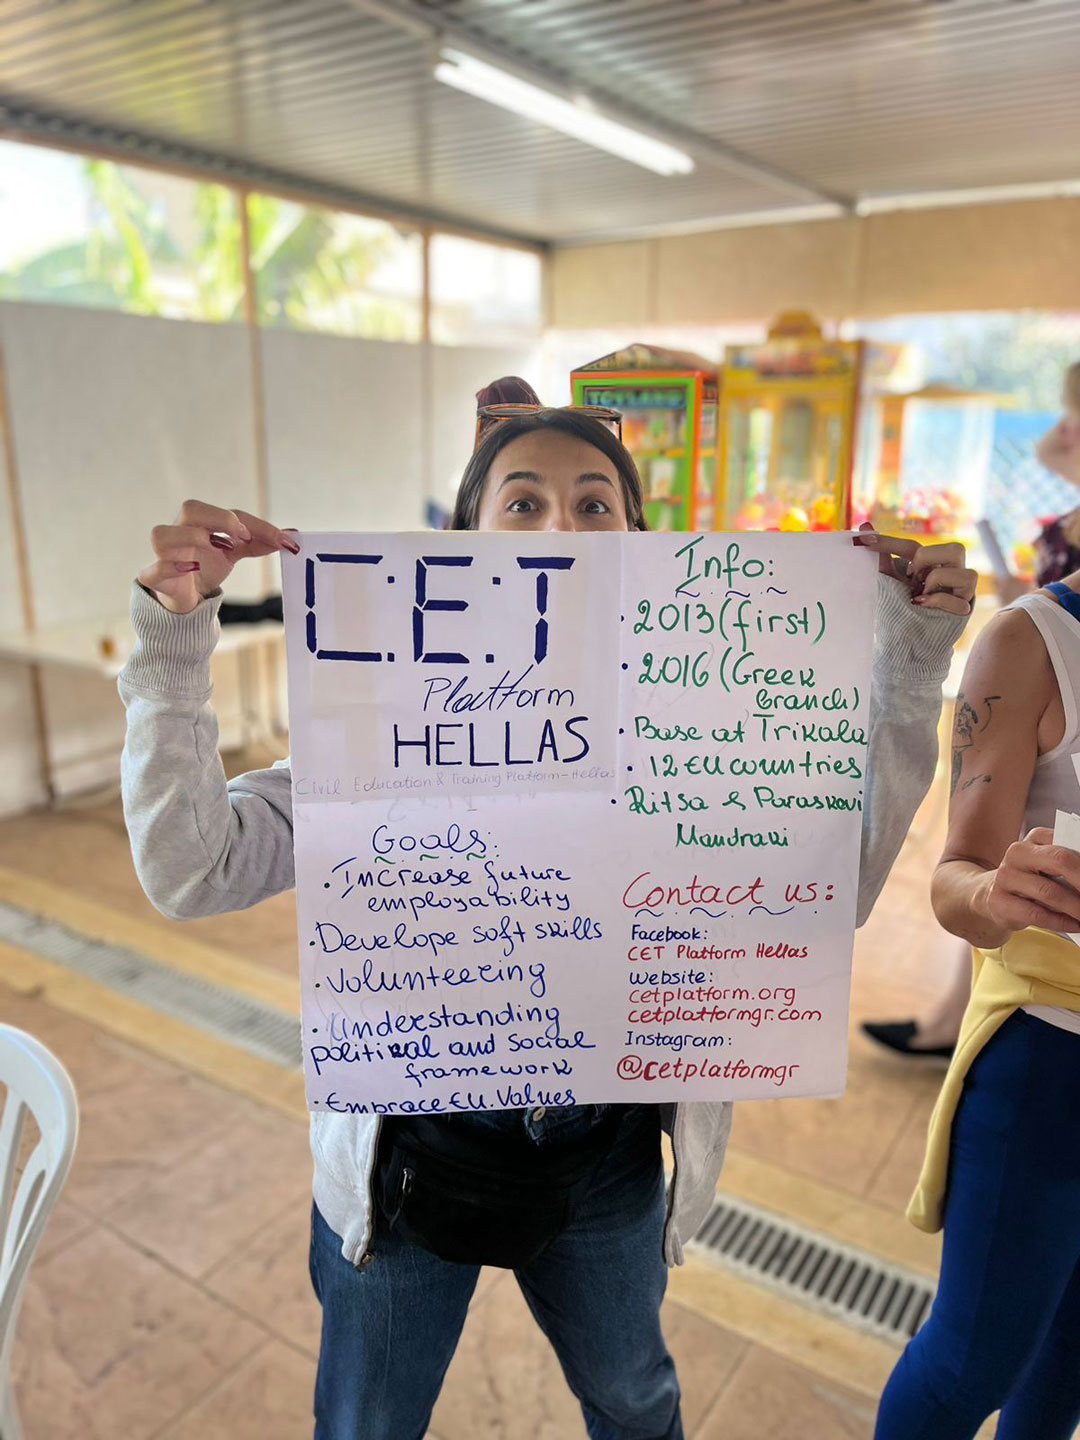 C.E.T
Platform
HELLAS
Civil Education & Training Platform-Hellas
Goals:
· Increase future
employability
· Develope soft skills
· Volunteering
· Understanding
political and social
framework
· Embrace EU. Values
Info:
· 2013 (first)
· 2016 (Greek
Branch)
· Base at Trikala
· 12 EU countries
· Ritsa & Paraskevi
Mandraki
Contact us:
Facebook:
CET Platform Hellas
Website:
cetplatform.org
cetplatformgr.com
Instagram:
@cetplatformgr
TOYLAND